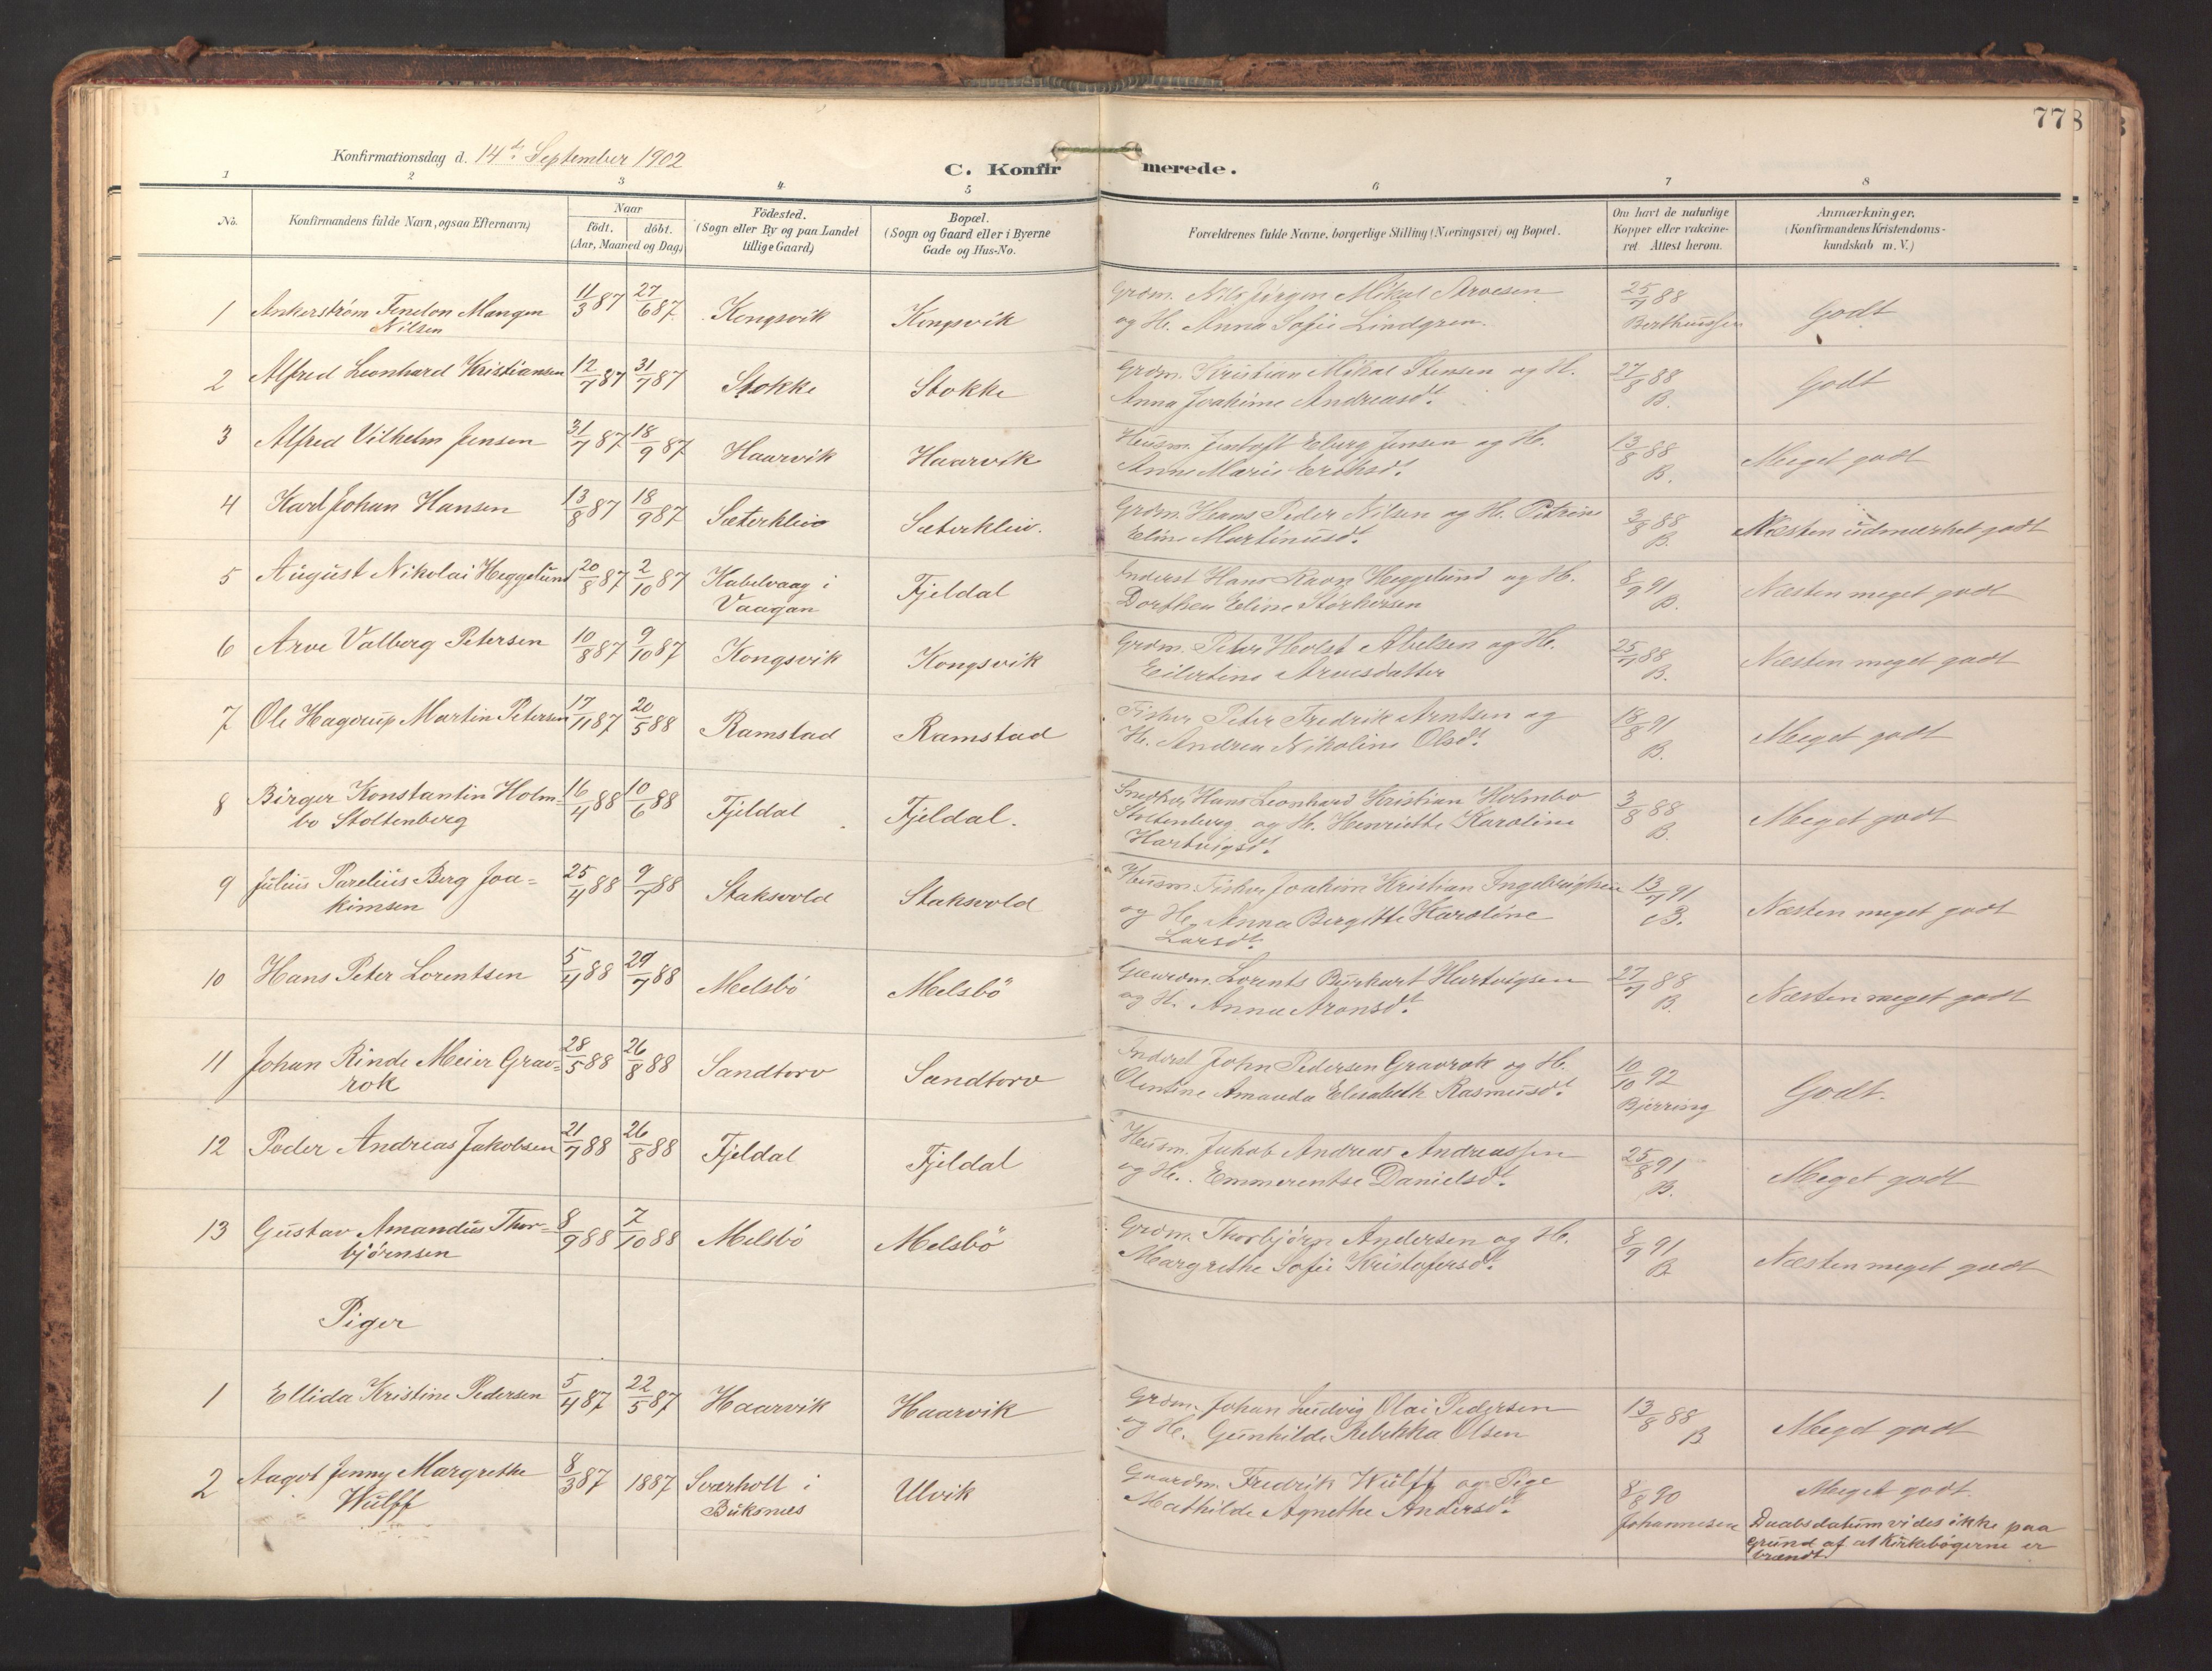 77
8
Konfirmationsdag d. 14de September 1902
C. Konfirmerede.
1 2 3 4 5 6 7 8
No.
Konfirmandens fulde Navn, ogsaa Efternavn)
Naar
født. døbt.
(Aar, Maaned og Dag)
Fødested.
(Sogn eller By og paa Landet
tillige Gaard)
Bopæl.
(Sogn og Gaard eller i Byerne
Gade og Hus-No.
Forældrenes fulde Navne, borgerlige Stilling (Næringsvei) og Bopæl.
Om havt de naturlige
Kopper eller vakcine-
ret. Attest herom.
Anmærkninger.
(Konfirmandens Kristendoms-
kundskab m. V.)
1 Ankerstrøm Fenelon Mangor 11/3 87 27/6 87 Kongsvik Kongsvik Grdm. Nils Jørgen Mikal Arvesen 25/7 88 Godt
Nilsen og H. Anna Sofie Lindgren. Bertheussen
2 Alfred Leonhard Kristiansen 12/7 87 31/7 87 Stokke Stokke Grdm. Kristian Mikal Stensen og H. 27/8 88 Godt
Anna Joakime Andreasdt. B.
3 Alfred Vilhelm Jensen 31/7 87 18/9 87 Haarvik Haarvik Husm. Jentoft Eberg Jensen og H. 13/8 88 Meget godt
Anne Marie Eriksdt. B.
4 Karl Johan Hansen 13/8 87 18/9 87 Sæterkleiv Sæterkleiv. Grdm. Hans Peder Nilsen og H. Petrine 3/8 88 Næsten udmærket godt
Eline Martinusdt. B.
5 August Nikolai Heggelund 20/8 87 2/10 87 Kabelvaag i Fjeldal Inderst Hans Ravn Heggelund og H. 8/9 91 Næsten meget godt
Vaagan Dorthea Eline Størkersen B.
6 Arve Valberg Petersen 10/8 87 9/10 87 Kongsvik Kongsvik Grdm. Peter Holst Abelsen og H. 25/7 88 Næsten meget godt
Eilertine Arvesdatter B.
7 Ole Hagerup Martin Petersen 17/11 87 20/5 88 Ramstad Ramstad Fisker Peter Fredrik Arntsen og 18/8 91 Meget godt
H. Andrea Nikoline Olsdt. B.
8 Birger Konstantin Holm- 16/4 88 10/6 88 Fjeldal Fjeldal. Snedker Hans Leonhard Kristian Holmbo 3/8 88 Meget godt
bo Stoltenberg Stoltenberg og H. Henriette Karoline B.
Hartvigsdt.
9 Julius Parelius Berg Joa- 25/4 88 9/7 88 Staksvold Staksvold Husm. Fisker Joakim Kristian Ingebrigtsen 13/7 91 Næsten meget godt
kimsen og H. Anna Bergitte Karoline B.
Larsdt.
10 Hans Peter Lorentsen 5/4 88 29/7 88 Melsbö Melsbö Gaardm. Lorents Burkart Hartvigsen 27/7 88 Næsten meget godt
og H. Anna Aronsdt. B.
11 Johan Rinde Meier Grav- 28/5 88 26/8 88 Sandtorv Sandtorv Inderst John Pedersen Gravrok og H. 10/10 92 Godt.
rok Olentine Amanda Elisabeth Rasmusdt. Bjerring
12 Peder Andreas Jakobsen 21/7 88 26/8 88 Fjeldal Fjeldal Husm. Jakob Andreas Andreassen 25/8 91 Meget godt
og H. Emmerentse Danielsdt. B.
13 Gustav Amandus Thor- 8/9 88 7/10 88 Melsbö Melsbö Grdm. Thorbjørn Andersen og H. 8/9 91 Næsten meget godt
bjørnsen Margrethe Sofie Kristofersdt. B
Piger
1 Ellida Kristine Pedersen 5/4 87 22/5 87 Haarvik Haarvik Grdm. Johan Ludvig Olai Pedersen 13/8 88 Meget godt
og H. Gunhilde Rebekka Olsen B
2 Aagot Jenny Margrethe 8/3 87 1887 Sværholt i Ulvik Gaardm. Fredrik Wulff og Pige 8/8 90 Meget godt.
Wulff Buksnes Mathilde Agnethe Andersdt. Johannesen Daabsdatum vides ikke paa
Grund af at Kirkebøgerne er
brændt.